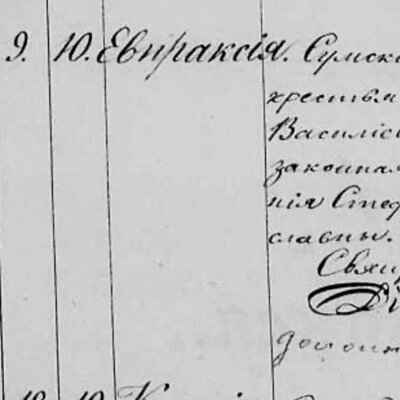 9. 10. Евпраксія. Сумск
крестья
Василіс
законная
нія Стеф
славны.
Свящ
Ді